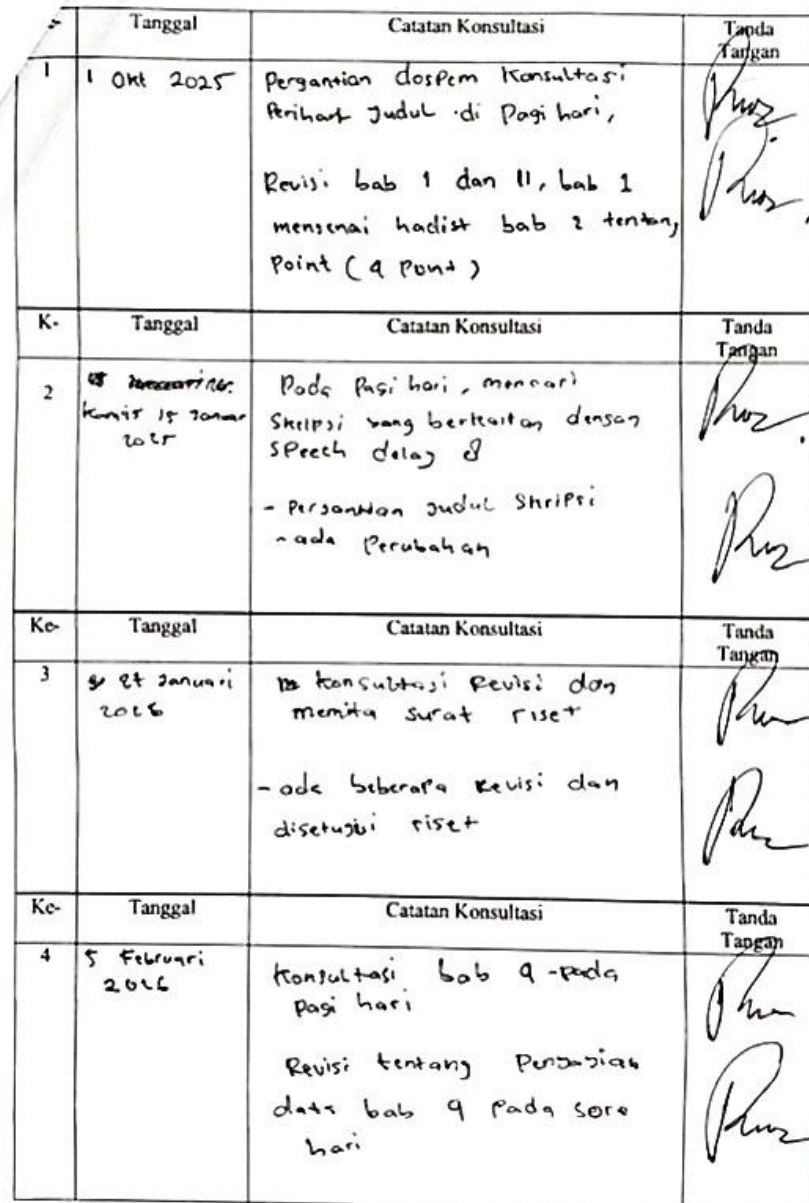 Tanggal Catatan Konsultasi Tanda Tangan
1 1 Okt 2025 Pergantian dospem Konsultasi
Perihal Judul di Pagi hari,
Revisi bab 1 dan II, bab 1
mengenai hadist bab 2 tentang
Point (4 Point)
K- Tanggal Catatan Konsultasi Tanda Tangan
2 Kamis 15 Januar
2025
Pada Pagi hari, mencari
Skripsi yang berkaitan dengan
Speech delay
- Pergantian Judul Skripsi
- ada Perubahan
Ke- Tanggal Catatan Konsultasi Tanda Tangan
3 27 Januari
2026
Konsultasi Revisi dan
meminta surat riset
- ada beberapa Revisi dan
disetujui riset
Ke- Tanggal Catatan Konsultasi Tanda Tangan
4 5 Februari
2026
Konsultasi bab 4 - pada
Pagi hari
Revisi tentang Penyajian
data bab 4 Pada sore
hari